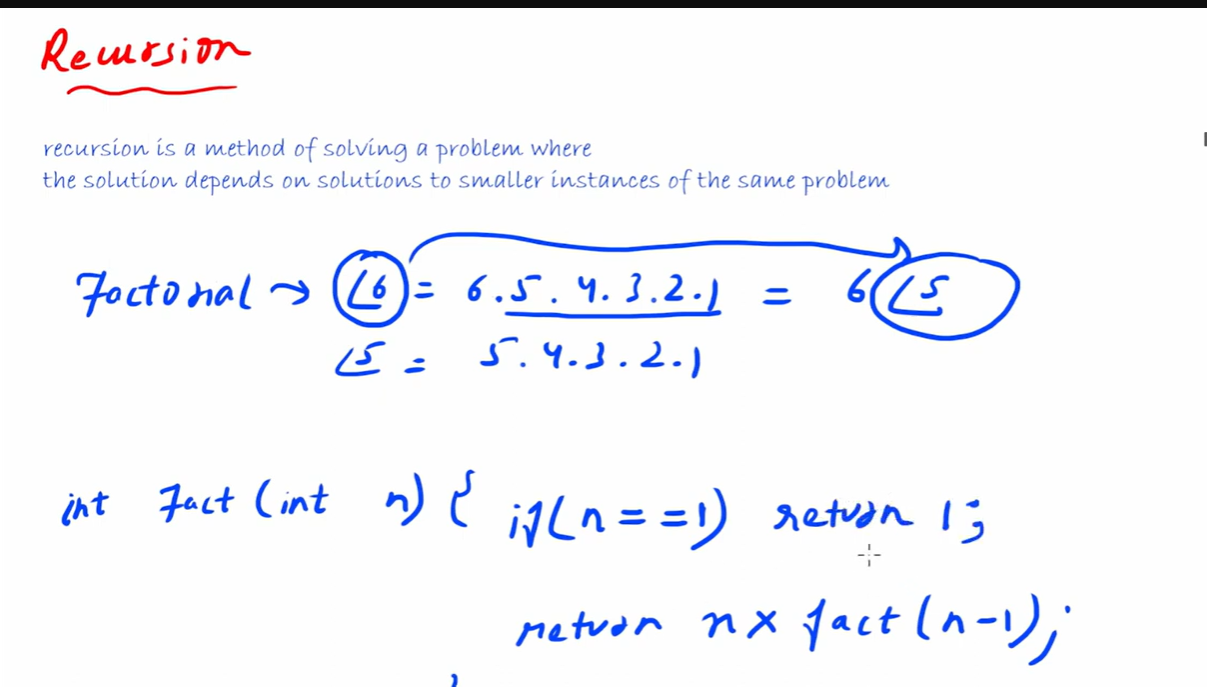 Recursion
recursion is a method of solving a problem where
the solution depends on solutions to smaller instances of the same problem
Factorial → ∠6 = 6.5.4.3.2.1 = 6∠5
∠5 = 5.4.3.2.1
int fact (int n) { if(n==1) return 1;
return n x fact(n-1);